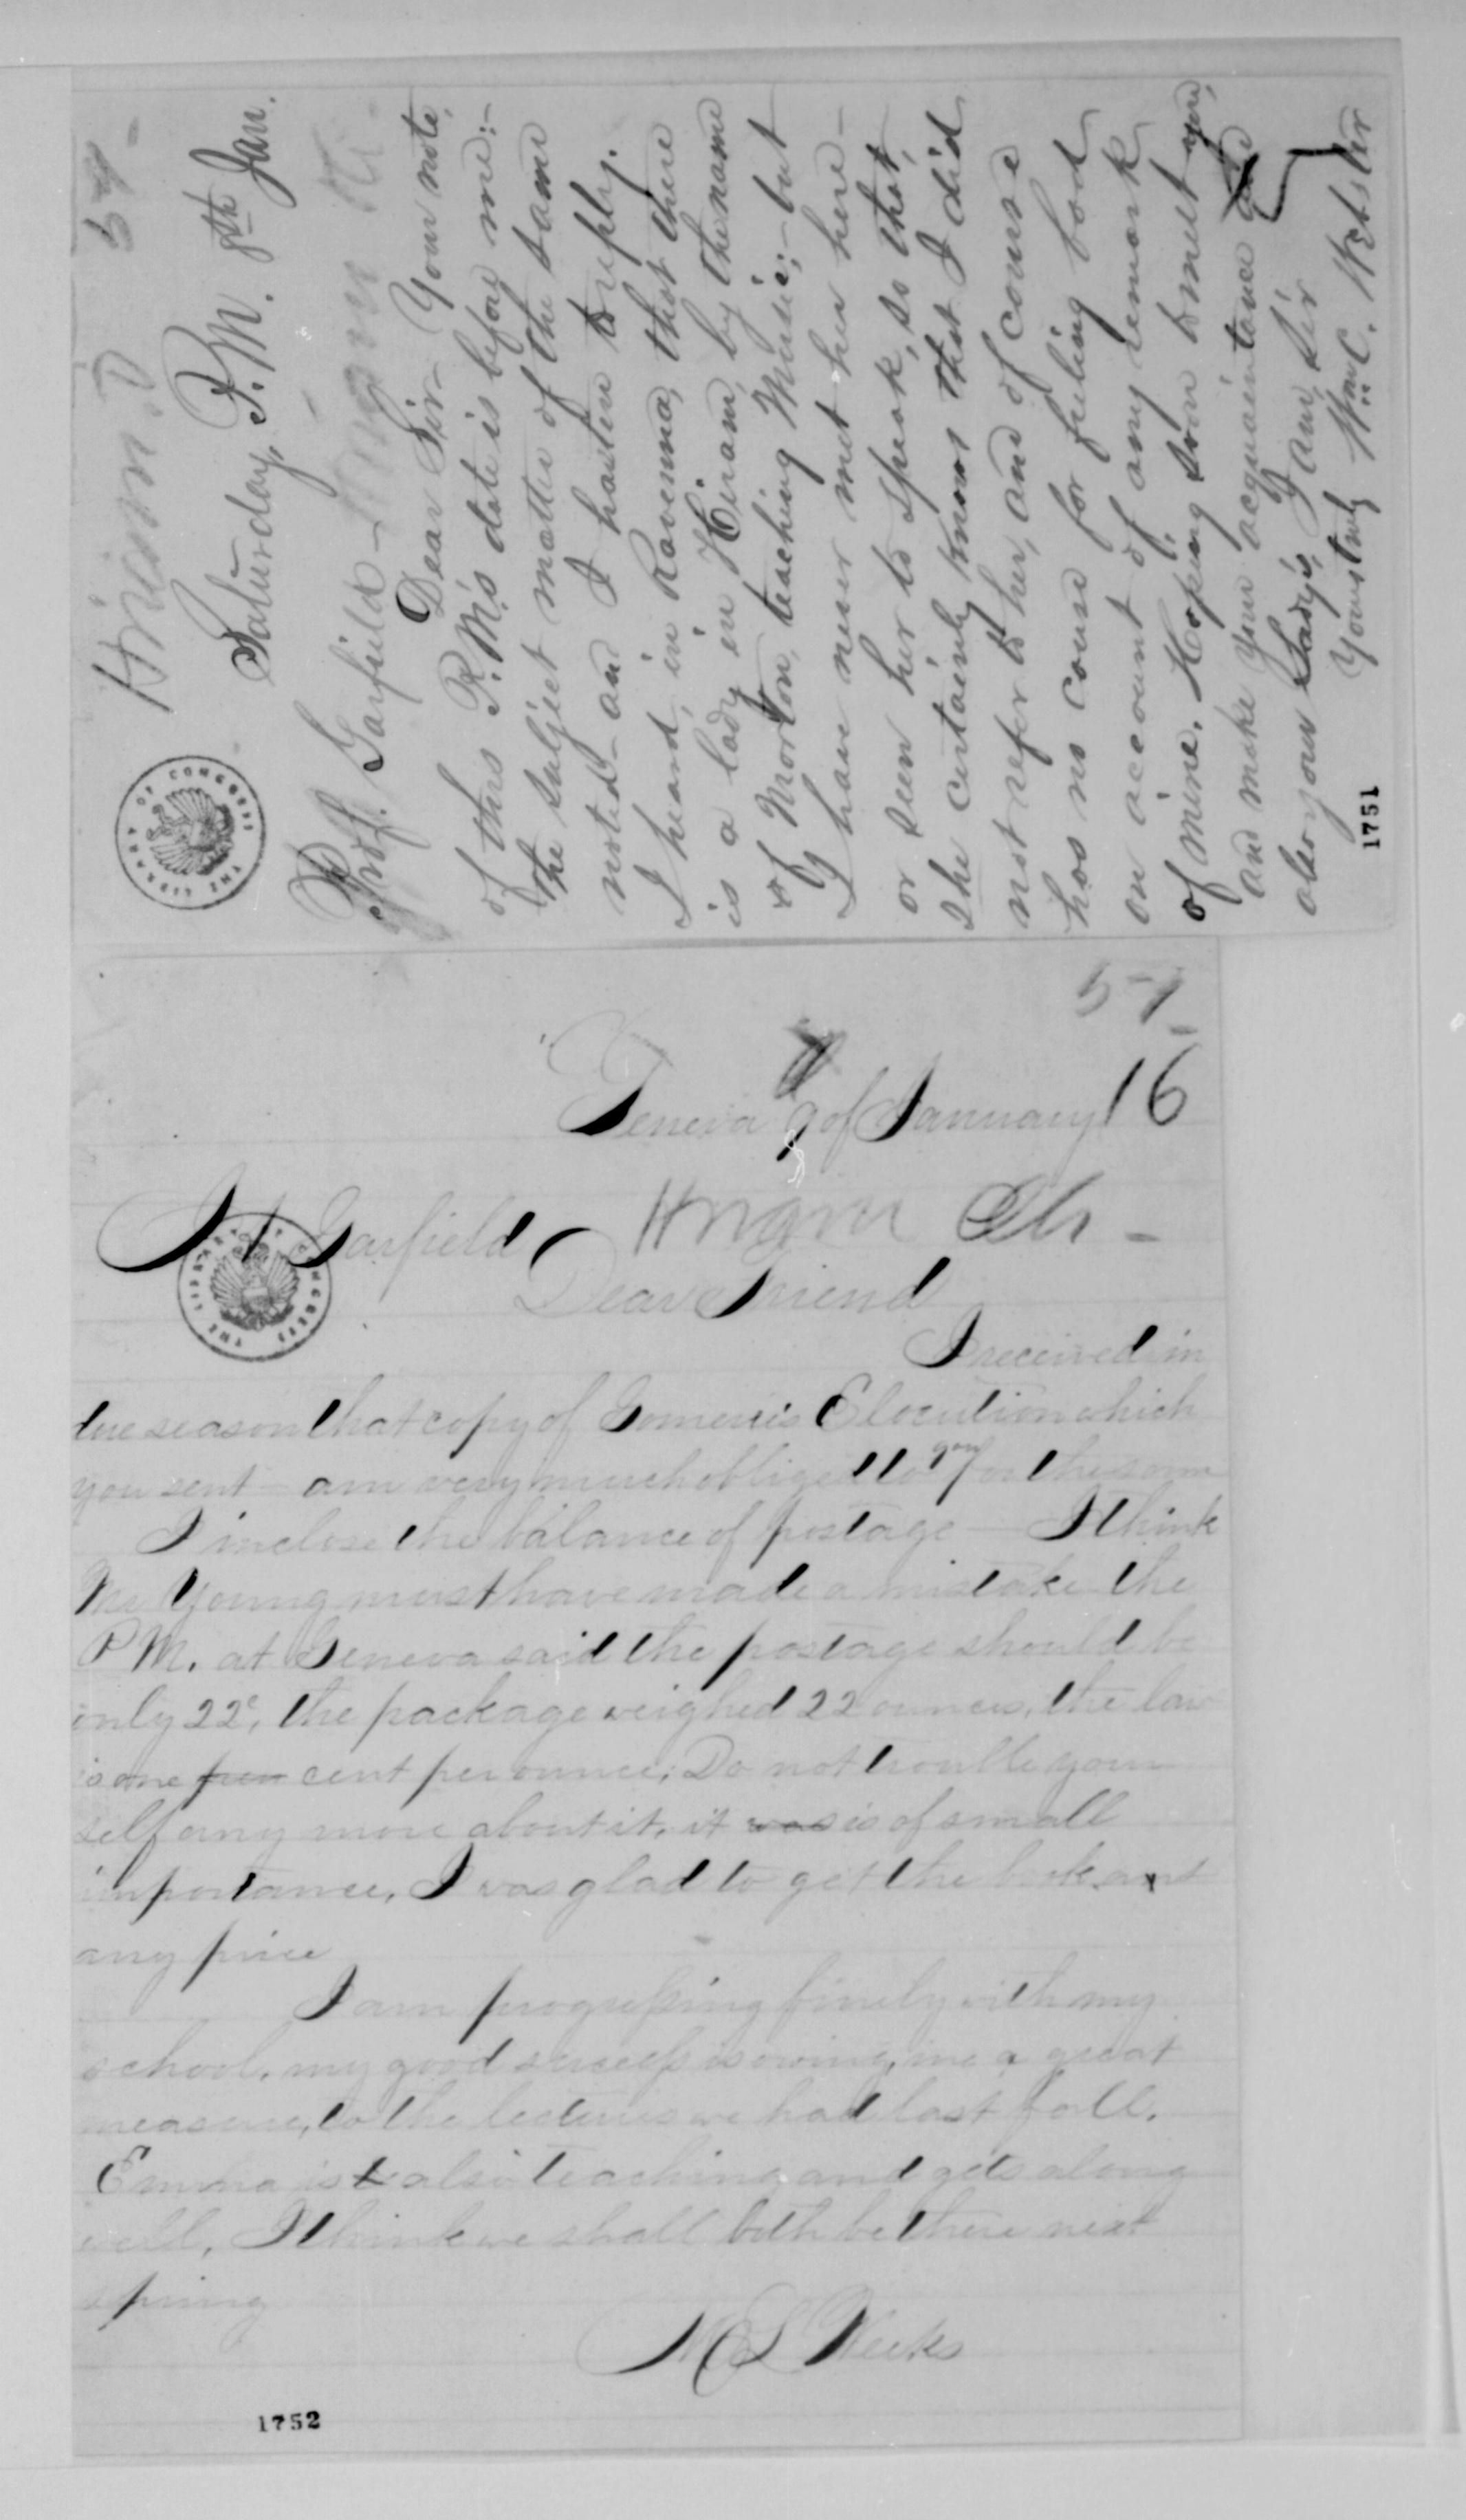 Hiram O 59 -
Saturday, P.M. 8th Jan.
Prof. Garfield -
Dear Sir - Your note,
of this P.M's date is before me:-
the subject matter of the same
noted - and I hasten to reply.
I heard, in Ravenna, that there
is a lady in Hiram, by the name
of Morton, teaching Music; - but
I have never met her here -
or seen her to speak, so that,
she certainly knows that I did
not refer to her, and of course
has no cause for feeling bad
on account of any remark
of mine. Hoping soon to meet you,
and make your acquaintance and
also your Lady's, I am, Sir
Yours truly Wm. C. Webster
1751
THE LIBRARY OF CONGRESS
59 -
Geneva 9 of January 16
J A Garfield Hiram Oh -
Dear Friend
I received in
due season that copy of Comeri's Elocution which
you sent - am very much obliged to you for the same
I inclose the balance of postage - I think
Mr Young must have made a mistake the
P M. at Geneva said the postage should be
only 22c, the package weighed 22 ounces, the law
is one per cent per ounce; Do not trouble your
self any more about it, it was is of small
importance, I was glad to get the book at
any price
I am progressing finely with my
school, my good success is owing, in a great
measure, to the lectures we had last fall.
Emma is also teaching and gets along
well, I think we shall both be there next
spring
M S Weeks
1752
THE LIBRARY OF CONGRESS